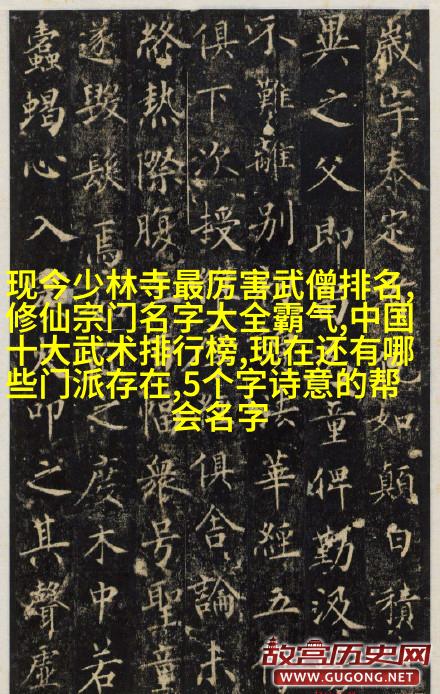 歲宇泰定如顛白積
異之父即童俾勤汲
不難離別華經五
俱下次授俱舍論未
終熱際腹衆号聖童
遂毀髮焉之度木中若
蠹蝎心入印之其聲虛
现今少林寺最厉害武僧排名,
修仙宗门名字大全霸气,中国
十大武术排行榜,现在还有哪
些门派存在,5个字诗意的帮
会名字
故宫历史网
WWW.GUGONG.NET